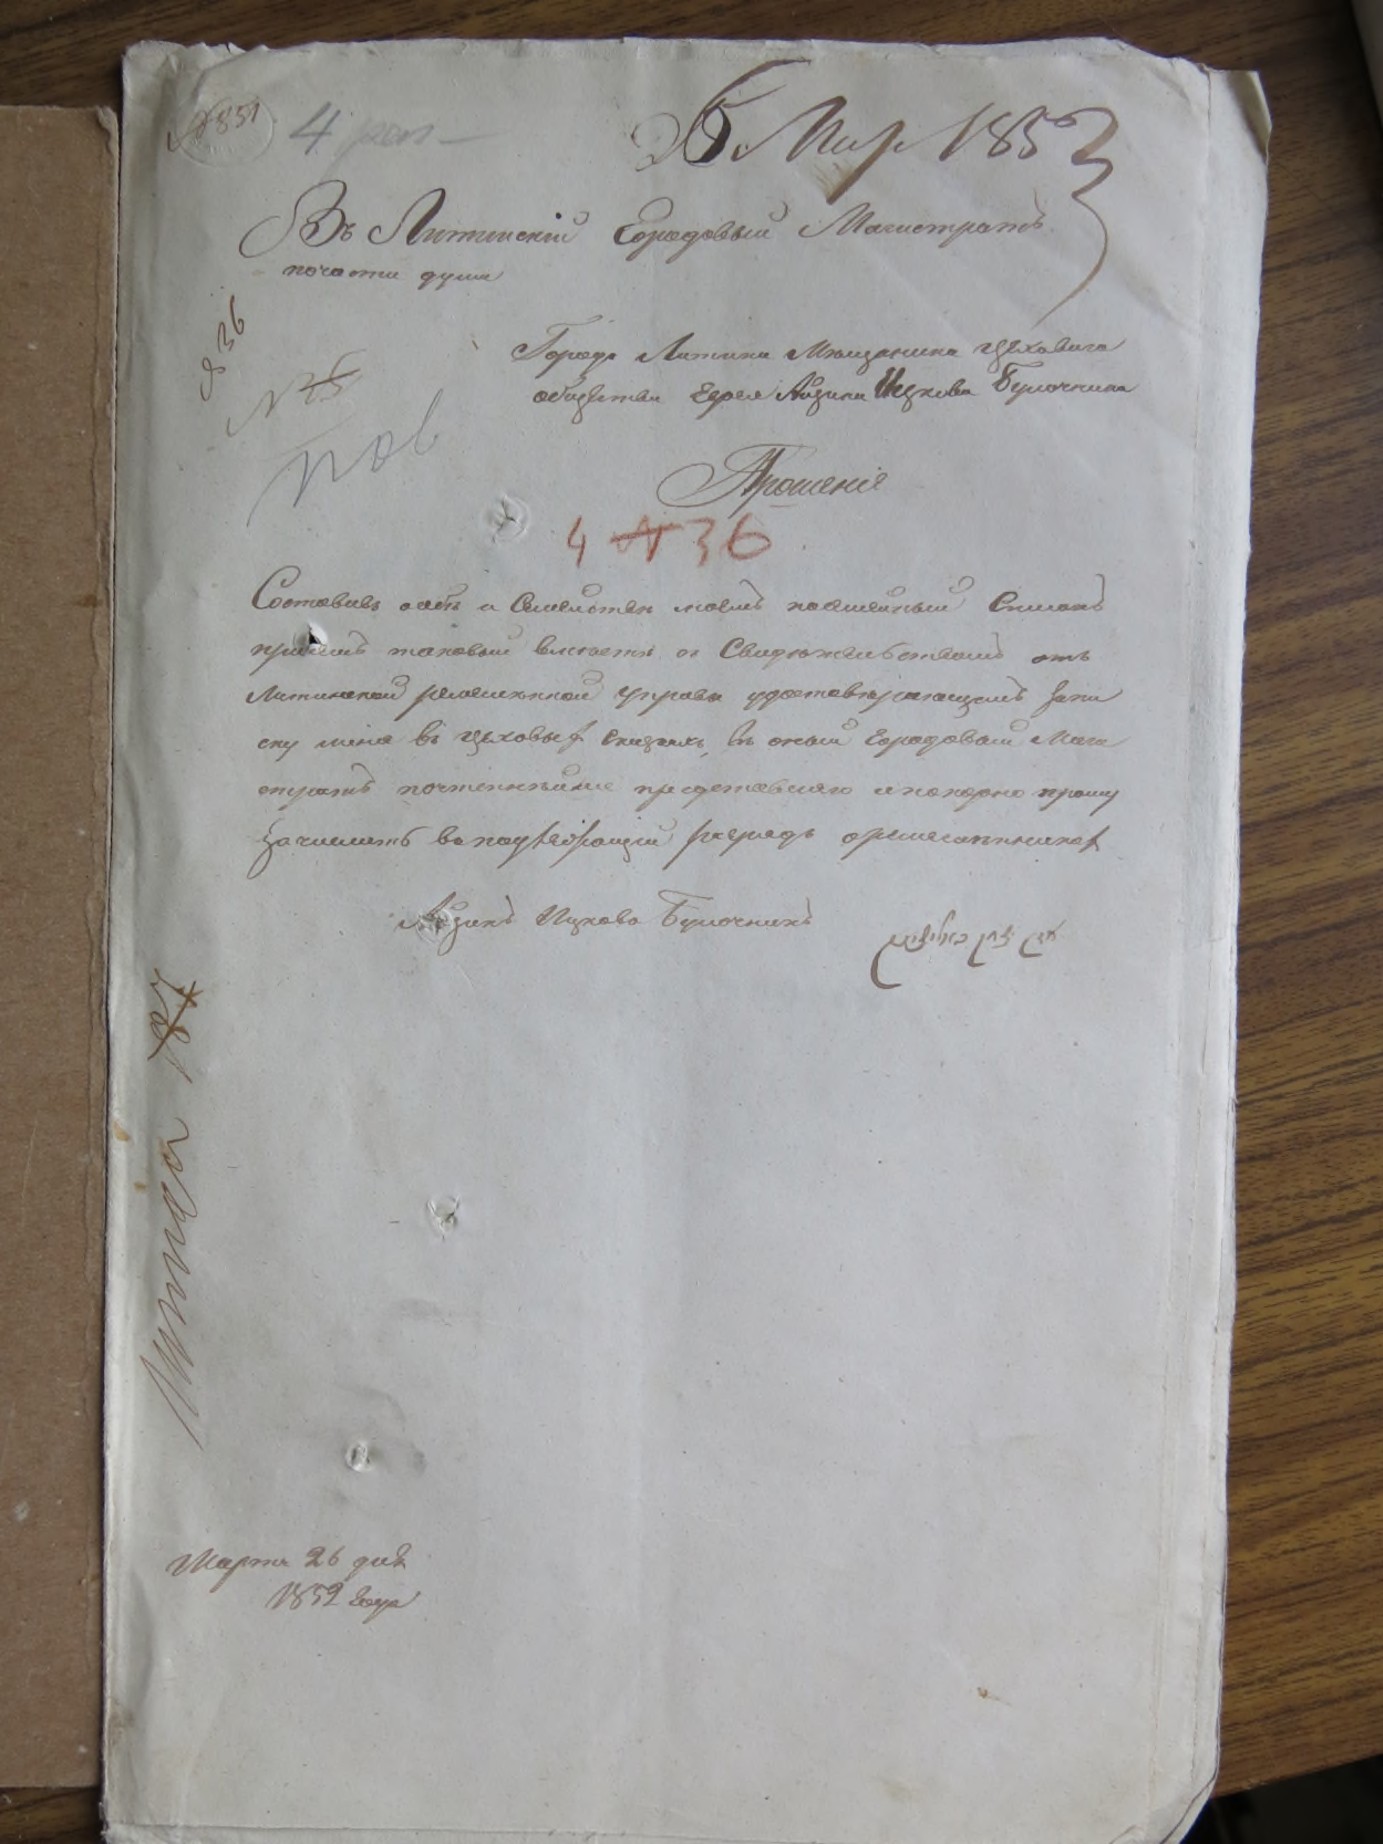 №851
4 рев
Б. Мар 1853
Въ Литинскій Городовый Магистратъ
почасти думы
№ 36
№ 25
пов
Города Литина Мѣщанина Цеховаго
общества Еврея Айзика Ицкова Булочника
Прошеніе
4 № 36
Составивъ о себѣ и Семействѣ моемъ посемейный Списокъ
таковый вмѣстѣ съ Свидѣтельствомъ отъ
Литинской ремесленной управы удостовѣряющемъ запи
ску меня въ цеховые, въ оный Городовый Маги
стратъ почтеннѣйше представляю и покорно прошу
Зачислить въ разрядъ ремесленниковъ
Айзикъ Ицкова Булочникъ
Марта 26 дня
1852 года